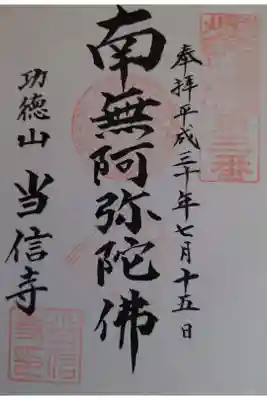 奉拝平成三十年七月十五日
南無阿弥陀佛
功徳山 当信寺